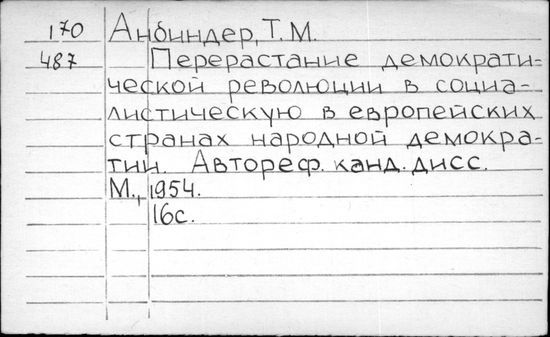 170 Анбиндер, Т. М.
487 Перерастание демократи-
ческой революции в социа-
листическую в европейских
странах народной демокра-
тии. Автореф. канд. дисс.
М., 1954.
16с.